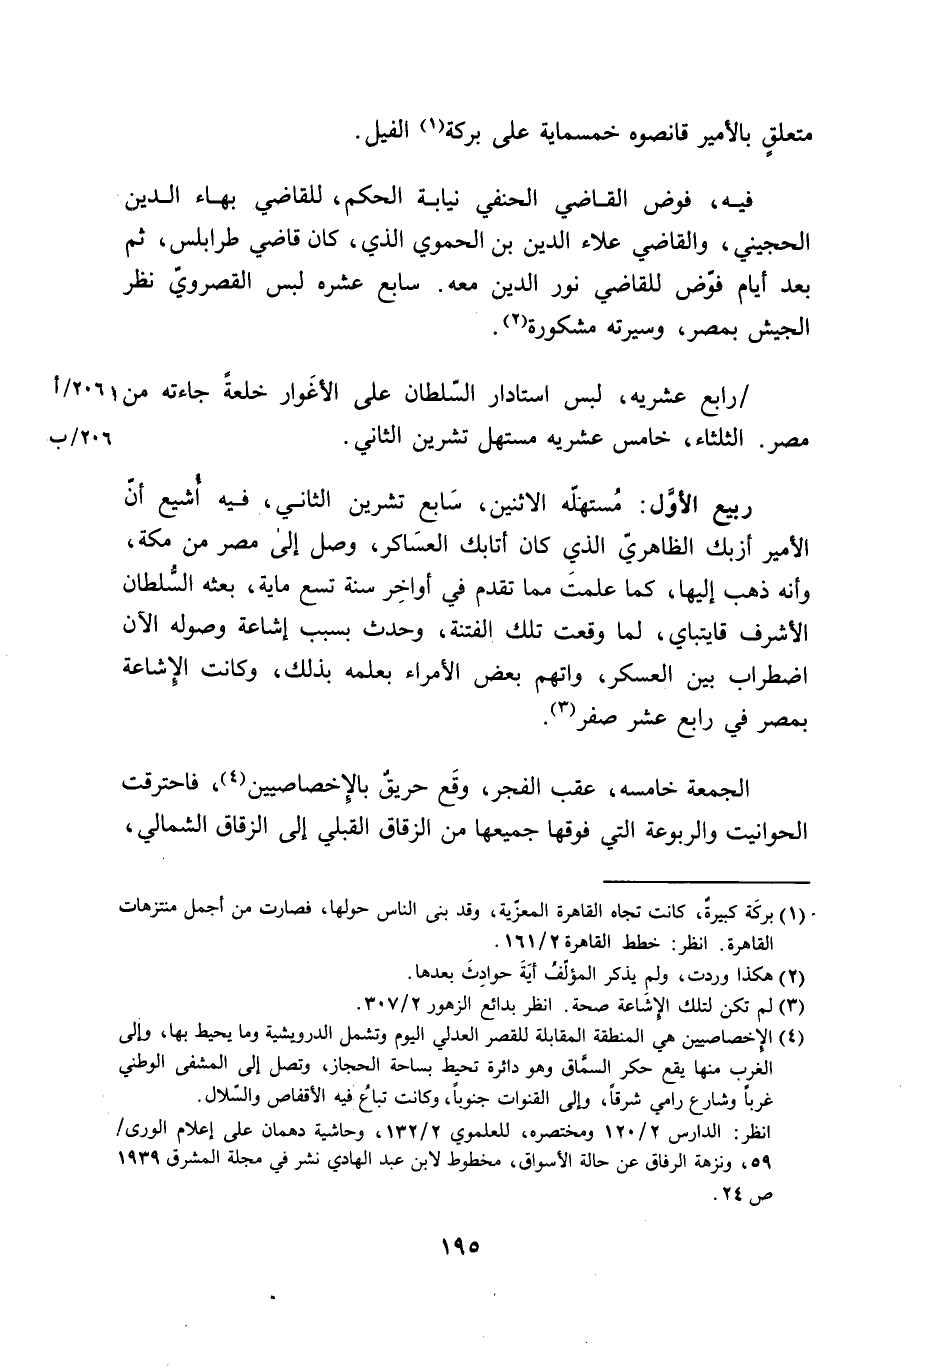 متعلقٍ بالأمير قانصوه خمسماية على بركة(١) الفيل.
فيه، فوض القاضي الحنفي نيابة الحكم، للقاضي بهاء الدين
الحجيني، والقاضي علاء الدين بن الحموي الذي، كان قاضي طرابلس، ثم
بعد أيام فوّض للقاضي نور الدين معه. سابع عشره لبس القصرويّ نظر
الجيش بمصر، وسيرته مشكورة(٢).
/رابع عشريه، لبس استادار السّلطان على الأغَوار خلعةً جاءته من ٢٠٦١/أ
مصر. الثلثاء، خامس عشريه مستهل تشرين الثاني. ٢٠٦/ب
ربيع الأوَّل: مُستهلّه الاثنين، سَابع تشرين الثاني، فيه أُشيع أنّ
الأمير أزبك الظاهريّ الذي كان أتابك العسَاكر، وصل إلىٰ مصر من مكة،
وأنه ذهب إليها، كما علمتَ مما تقدم في أواخِر سنة تسع ماية، بعثه السُّلطان
الأشرف قايتباي، لما وقعت تلك الفتنة، وحدث بسبب إشاعة وصوله الآن
اضطراب بين العسكر، واتهم بعض الأمراء بعلمه بذلك، وكانت الإشاعة
بمصر في رابع عشر صفر(٣).
الجمعة خامسه، عقب الفجر، وقَع حريقٌ بالإخصاصيين(٤)، فاحترقت
الحوانيت والربوعة التي فوقها جميعها من الزقاق القبلي إلى الزقاق الشمالي،
(١) بركَة كبيرةٌ، كانت تجاه القاهرة المعزّية، وقد بنى الناس حولها، فصارت من أجمل منتزهات
القاهرة. انظر: خطط القاهرة ١٦١/٢.
(٢) هكذا وردت، ولم يذكر المؤلّفُ أيَةَ حوادِثَ بعدها.
(٣) لم تكن لتلك الإشَاعة صحة. انظر بدائع الزهور ٣٠٧/٢.
(٤) الإخصاصيين هي المنطقة المقابلة للقصر العدلي اليوم وتشمل الدرويشية وما يحيط بها، وإلى
الغرب منها يقع حكر السمَّاق وهو دائرة تحيط بساحة الحجاز، وتصل إلى المشفى الوطني
غرباً وشارع رامي شرقاً، وإلى القنوات جنوباً، وكانت تباعُ فيه الأقفاص والسّلال.
انظر: الدارس ١٢٠/٢ ومختصره، للعلموي ١٣٢/٢، وحاشية دهمان على إعلام الورى/
٥٩، ونزهة الرفاق عن حالة الأسواق، مخطوط لابن عبد الهادي نشر في مجلة المشرق ١٩٣٩
ص ٢٤.
١٩٥